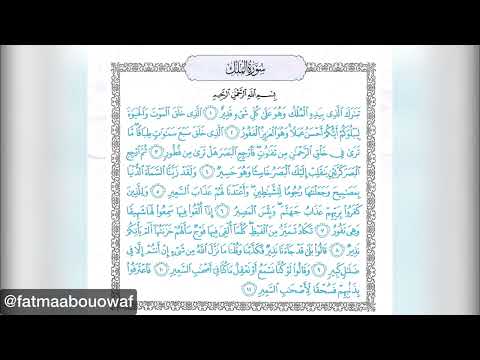 سُورَةُ الْمُلْكِ
بِسْمِ اللَّهِ الرَّحْمَٰنِ الرَّحِيمِ
تَبَٰرَكَ ٱلَّذِى بِيَدِهِ ٱلْمُلْكُ وَهُوَ عَلَىٰ كُلِّ شَىْءٍ قَدِيرٌ ١ ٱلَّذِى خَلَقَ ٱلْمَوْتَ وَٱلْحَيَوٰةَ
لِيَبْلُوَكُمْ أَيُّكُمْ أَحْسَنُ عَمَلًا وَهُوَ ٱلْعَزِيزُ ٱلْغَفُورُ ٢ ٱلَّذِى خَلَقَ سَبْعَ سَمَٰوَٰتٍ طِبَاقًا مَّا
تَرَىٰ فِى خَلْقِ ٱلرَّحْمَٰنِ مِن تَفَٰوُتٍ فَٱرْجِعِ ٱلْبَصَرَ هَلْ تَرَىٰ مِن فُطُورٍ ٣ ثُمَّ ٱرْجِعِ
ٱلْبَصَرَ كَرَّتَيْنِ يَنقَلِبْ إِلَيْكَ ٱلْبَصَرُ خَاسِئًا وَهُوَ حَسِيرٌ ٤ وَلَقَدْ زَيَّنَّا ٱلسَّمَآءَ ٱلدُّنْيَا
بِمَصَٰبِيحَ وَجَعَلْنَٰهَا رُجُومًا لِّلشَّيَٰطِينِ وَأَعْتَدْنَا لَهُمْ عَذَابَ ٱلسَّعِيرِ ٥ وَلِلَّذِينَ
كَفَرُوا۟ بِرَبِّهِمْ عَذَابُ جَهَنَّمَ وَبِئْسَ ٱلْمَصِيرُ ٦ إِذَآ أُلْقُوا۟ فِيهَا سَمِعُوا۟ لَهَا شَهِيقًا
وَهِىَ تَفُورُ ٧ تَكَادُ تَمَيَّزُ مِنَ ٱلْغَيْظِ كُلَّمَآ أُلْقِىَ فِيهَا فَوْجٌ سَأَلَهُمْ خَزَنَتُهَآ أَلَمْ يَأْتِكُمْ
نَذِيرٌ ٨ قَالُوا۟ بَلَىٰ قَدْ جَآءَنَا نَذِيرٌ فَكَذَّبْنَا وَقُلْنَا مَا نَزَّلَ ٱللَّهُ مِن شَىْءٍ إِنْ أَنتُمْ إِلَّا فِى
ضَلَٰلٍ كَبِيرٍ ٩ وَقَالُوا۟ لَوْ كُنَّا نَسْمَعُ أَوْ نَعْقِلُ مَا كُنَّا فِىٓ أَصْحَٰبِ ٱلسَّعِيرِ ١٠ فَٱعْتَرَفُوا۟
بِذَنۢبِهِمْ فَسُحْقًا لِّأَصْحَٰبِ ٱلسَّعِيرِ ١١
@fatmaabouowaf